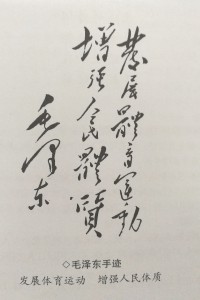 發展體育運動
增强人民體質
毛泽东
◇毛泽东手迹
发展体育运动 增强人民体质